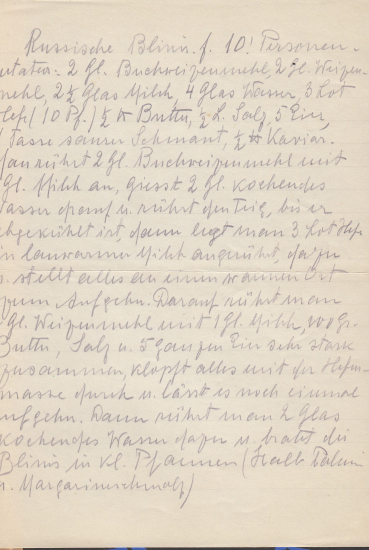 Russische Blinis f. 10! Personen.
utaten: 2 Gl. Buchweizenmehl, 2 Gl. Weizen-
mehl, 2½ Glas Milch, 4 Glas Wasser, 3 Lot
Hefe (10 Pf.) ½ ℔ Butter, ½ L. Salz, 5 Eier,
1 Tasse saurer Schmant, ½ ℔ Kaviar.
an rührt 2 Gl. Buchweizenmehl mit
Gl. Milch an, giesst 2 Gl. kochendes
asser darauf u. rührt den Teig, bis er
bgekühlt ist, dann legt man 3 Lot Hefe
in lauwarmer Milch angerührt, dazu
u. stellt alles an einen warmen Ort
zum Aufgehn. Darauf rührt man
Gl. Weizenmehl mit 1 Gl. Milch, 200 Gr.
Butter, Salz u. 5 ganzen Eier sehr stark
zusammen, klopft alles mit der Hefen-
masse durch u. lässt es noch einmal
aufgehn. Dann rührt man 2 Glas
kochendes Wasser dazu u. bratet die
Blinis in kl. Pfannen (Halb
u. Margarineschmalz)